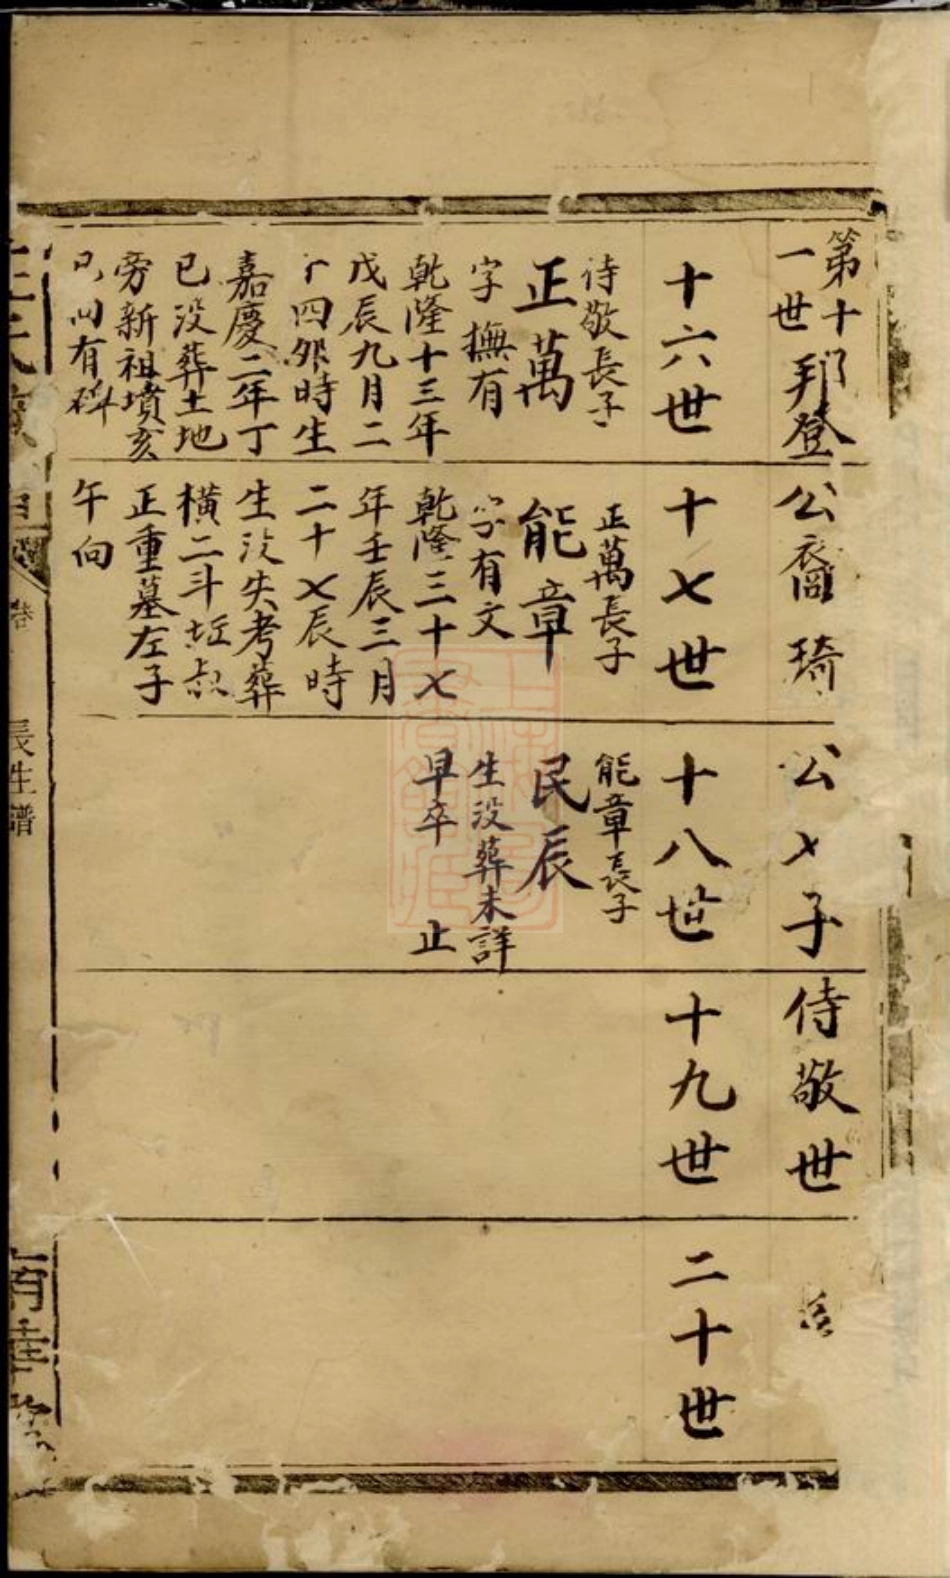 第十
一世邦登公裔琦公子侍敬世
十六世
侍敬長子
正萬
字撫有
乾隆十三年
戊辰九月二
十四卯時生
嘉慶二年丁
已没葬土地
旁新祖墳亥
向有碑
十七世
正萬長子
能章
字有文
乾隆三十七
年壬辰三月
二十七辰時
生没失考葬
橫二斗坵叔
正重墓左子
午向
十八世
能章長子
民辰
生没葬未詳
早卒 止
十九世
二十世
卷
長生譜